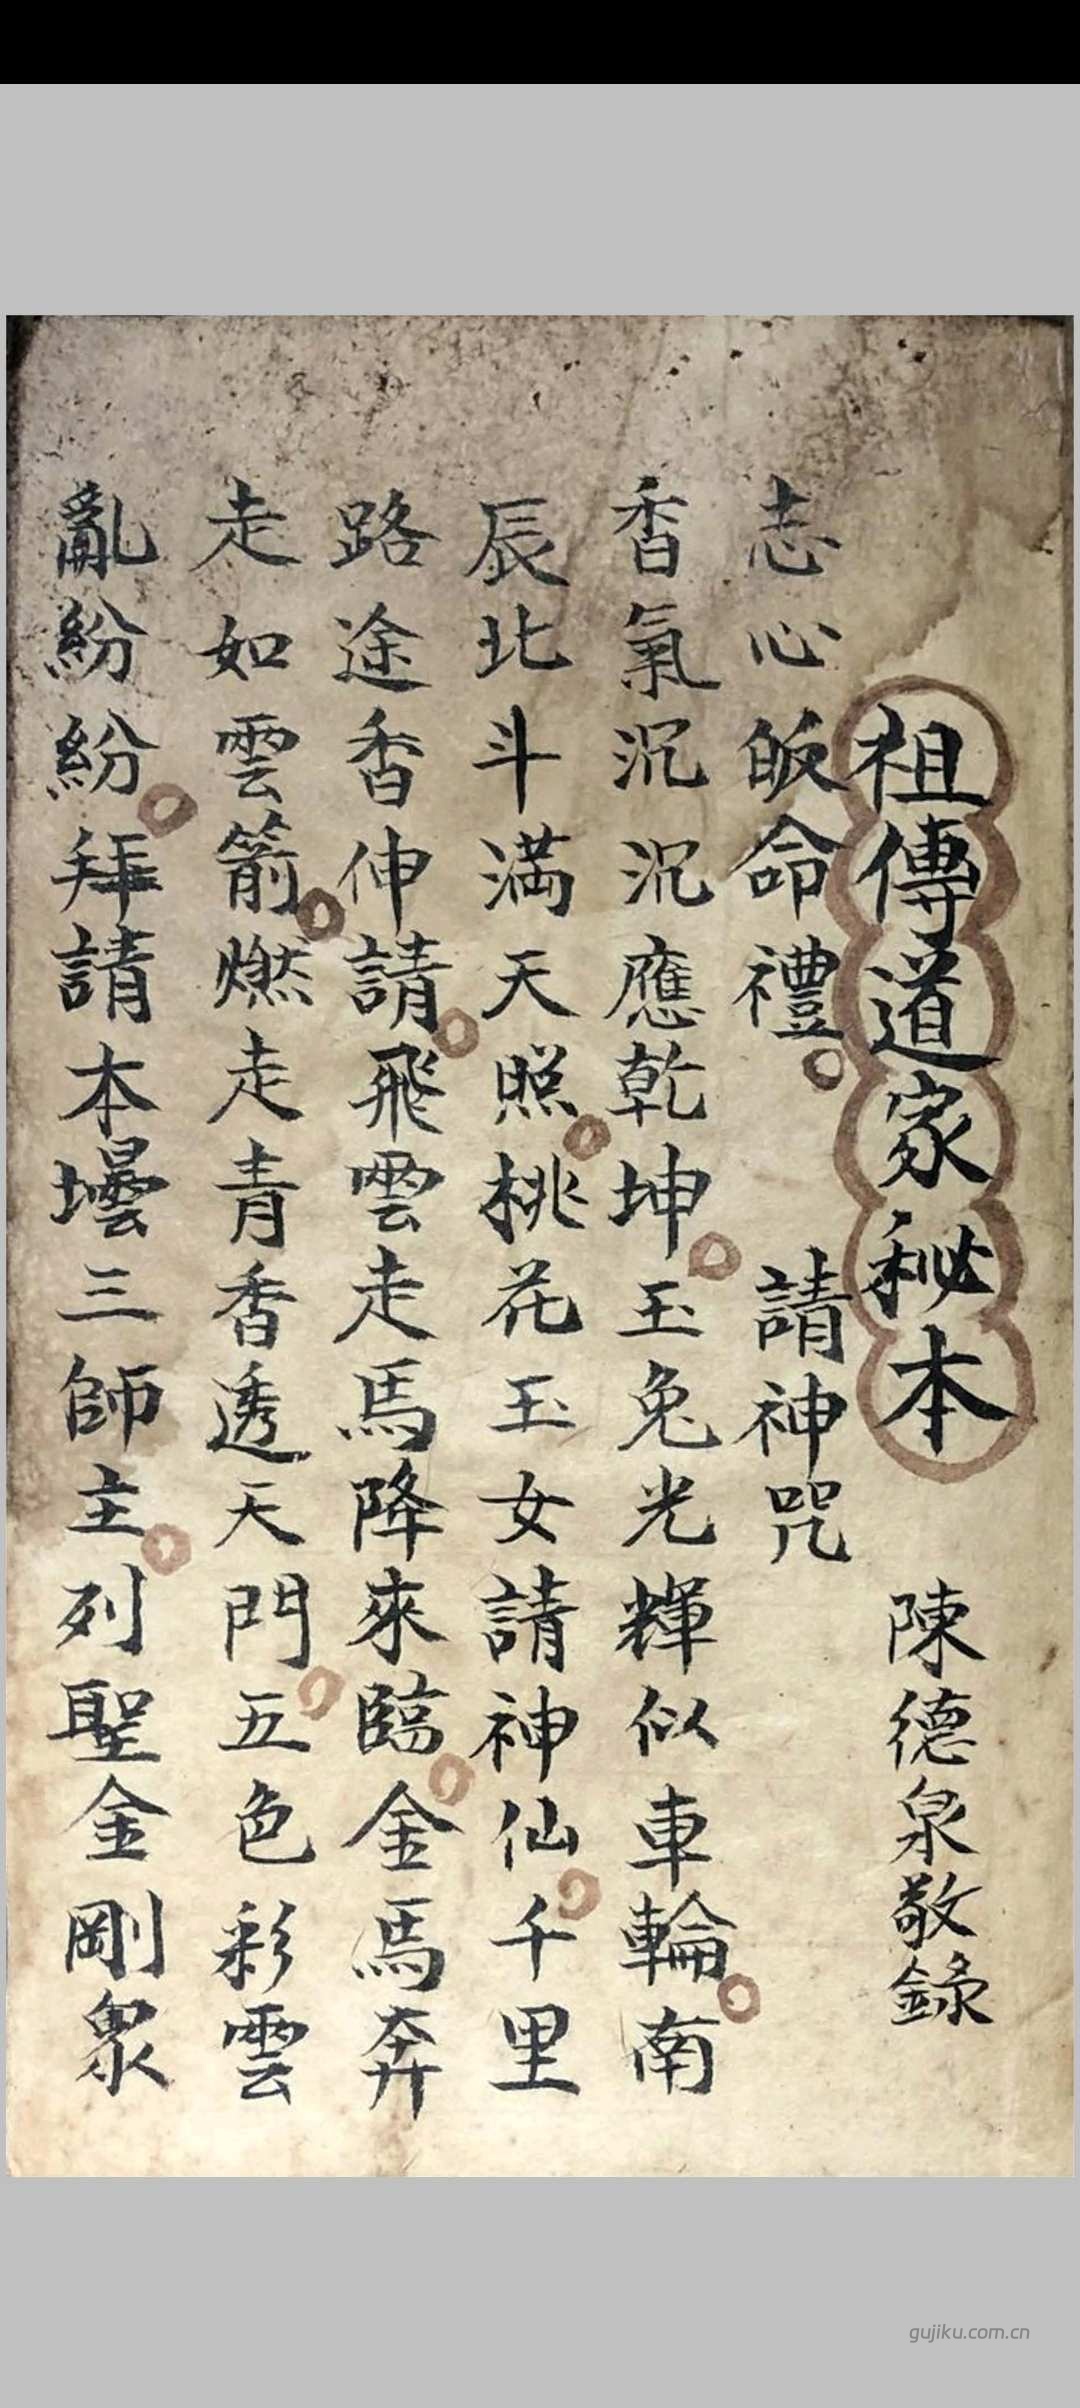 祖傳道家秘本 陳德泉敬錄
志心皈命禮 請神咒
香氣沉沉應乾坤玉兔光輝似車輪南
辰北斗滿天照桃花玉女請神仙千里
路途香伸請飛雲走馬降來臨金馬奔
走如雲箭燃走青香透天門五色彩雲
亂紛紛拜請本壜三師主列聖金剛眾
gujiku.com.cn